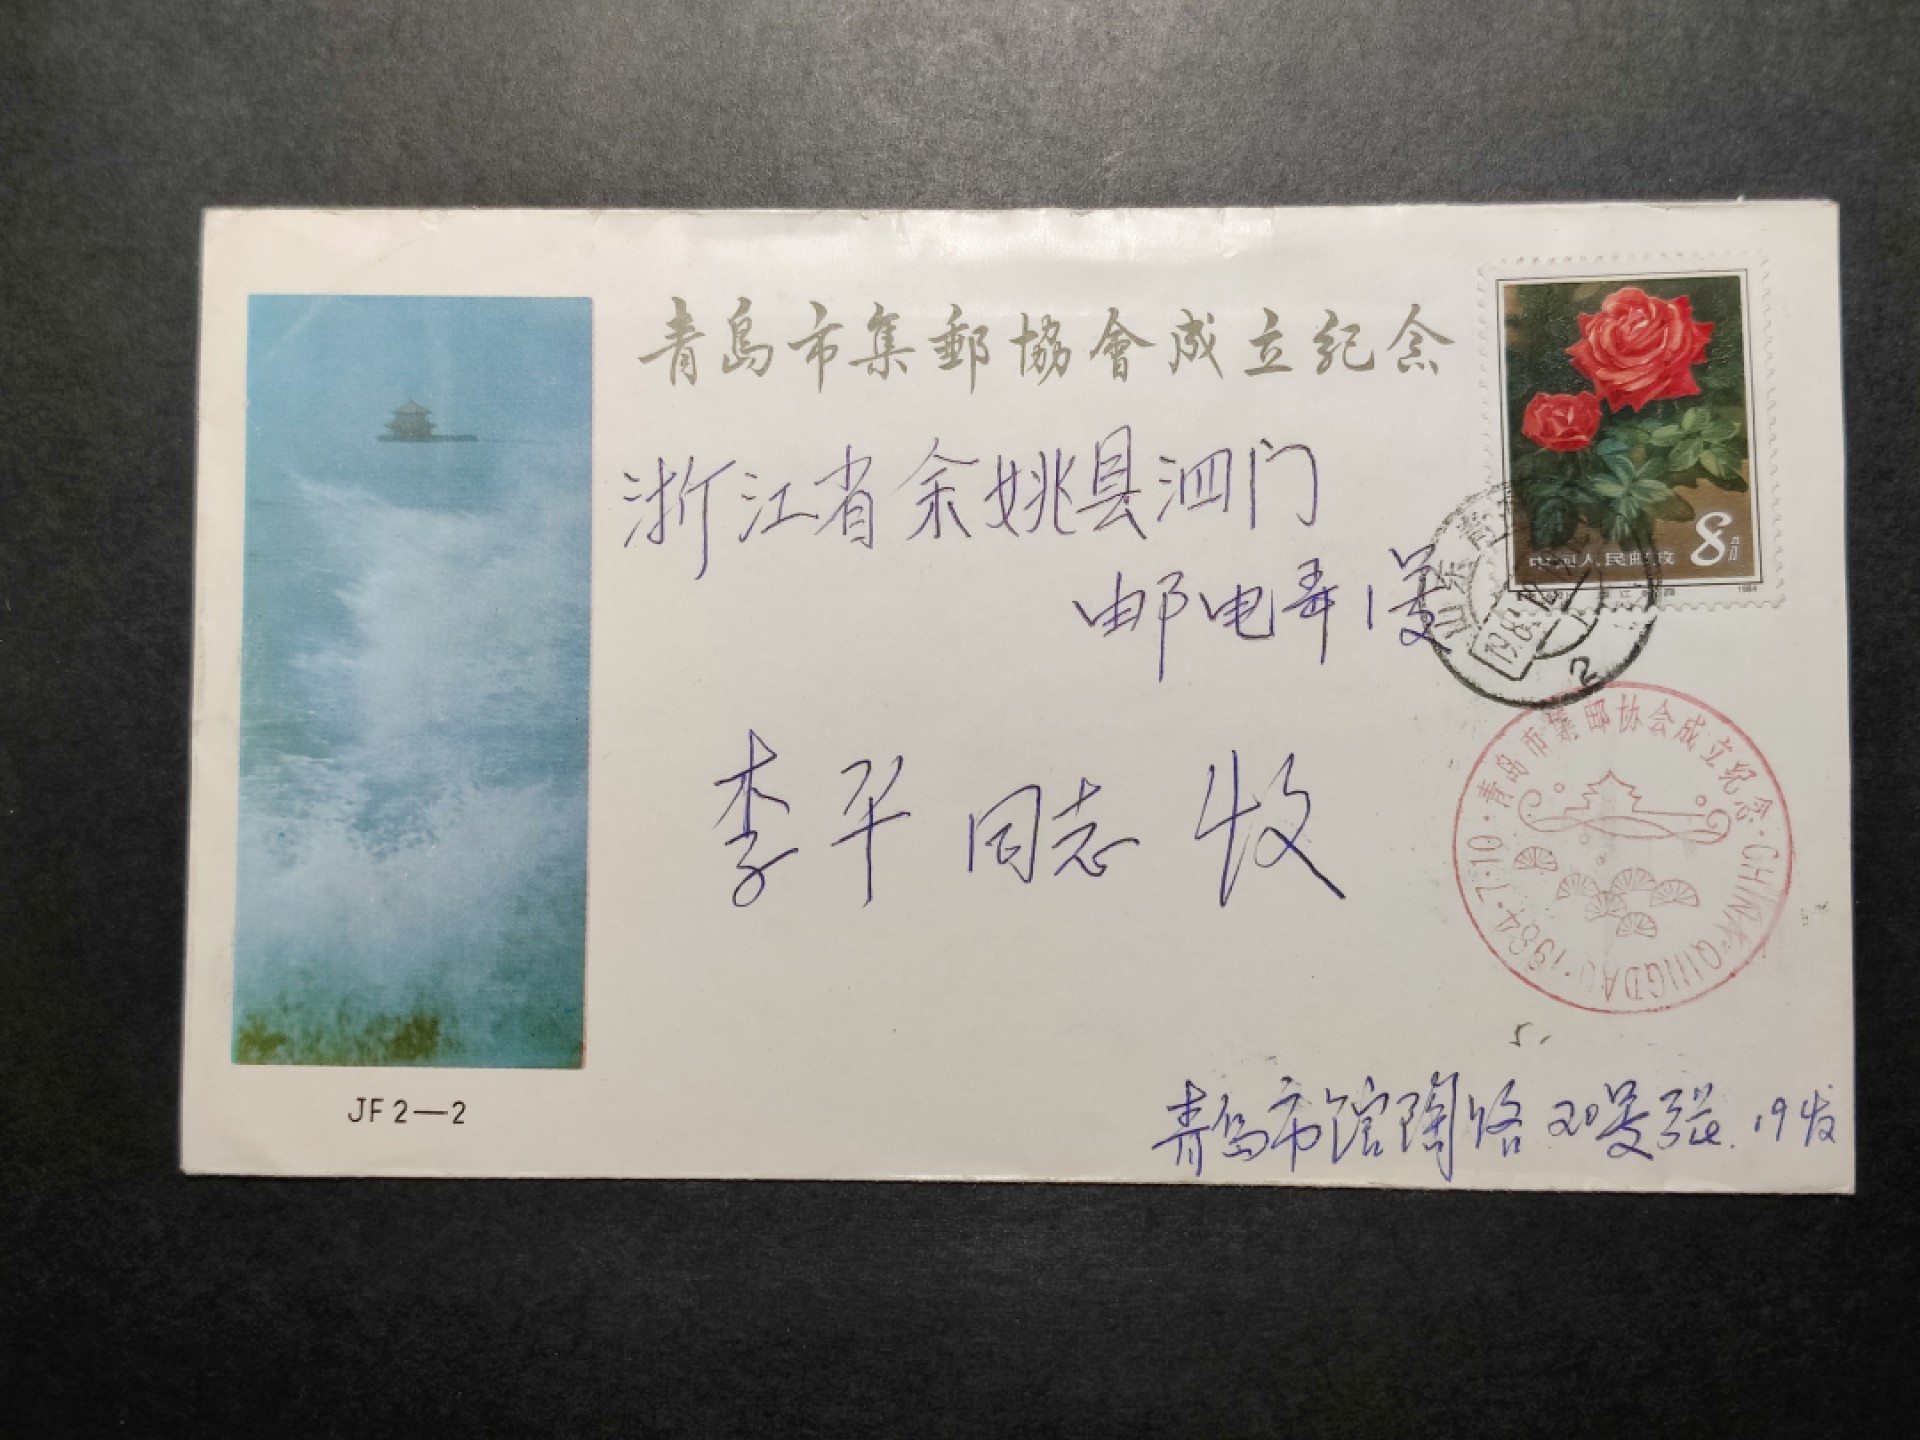 青島市集郵協會成立纪念
浙江省余姚县泗门
邮电弄1号
李平同志 收
中国人民邮政
8分
1984
山东青岛
2
青岛市集邮协会成立纪念·CHINA·QINGDAO·1984·7·10·
JF2—2
青岛市馆陶路